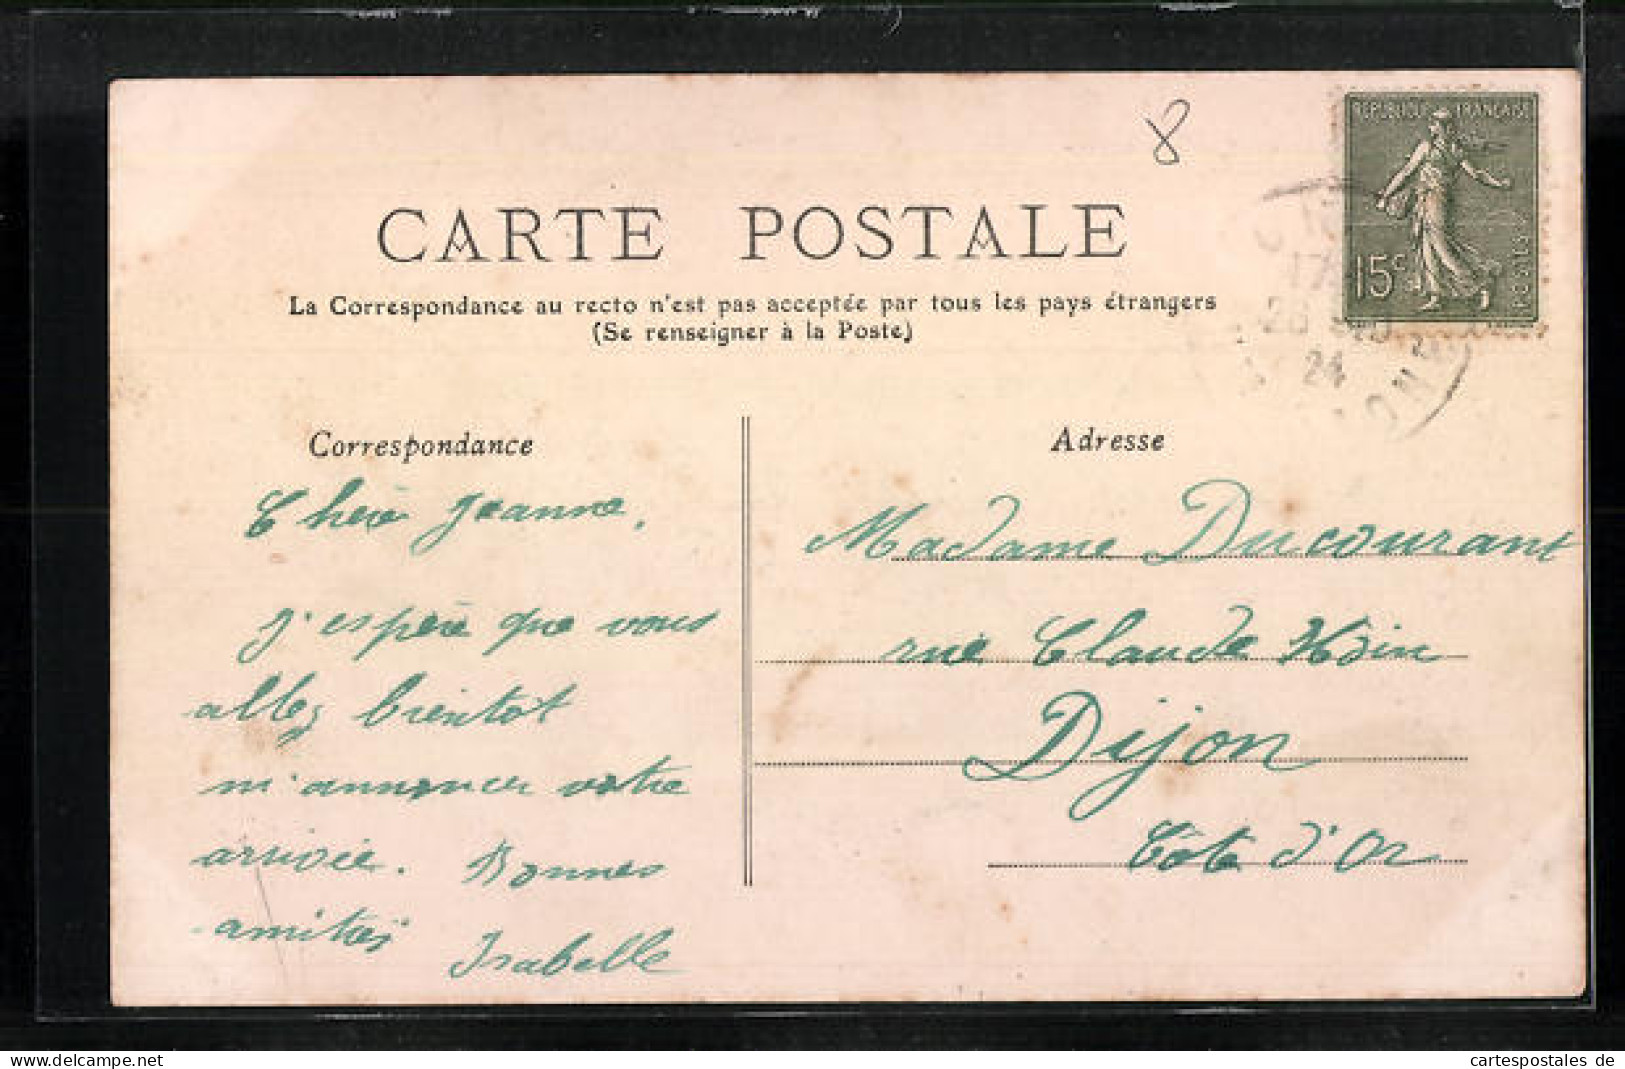 8
REPUBLIQUE FRANÇAISE
15c
POSTES
CARTE POSTALE
La Correspondance au recto n'est pas acceptée par tous les pays étrangers
(Se renseigner à la Poste)
17
24
Correspondance
Chère Jeanne,
J'espère que vous
allez bientot
m'annoncer votre
arrivée. Bonnes
amitiés
Isabelle
Adresse
Madame Ducourant
rue Claude
Dijon
Côte d'Or
delcampe.net
cartespostales de